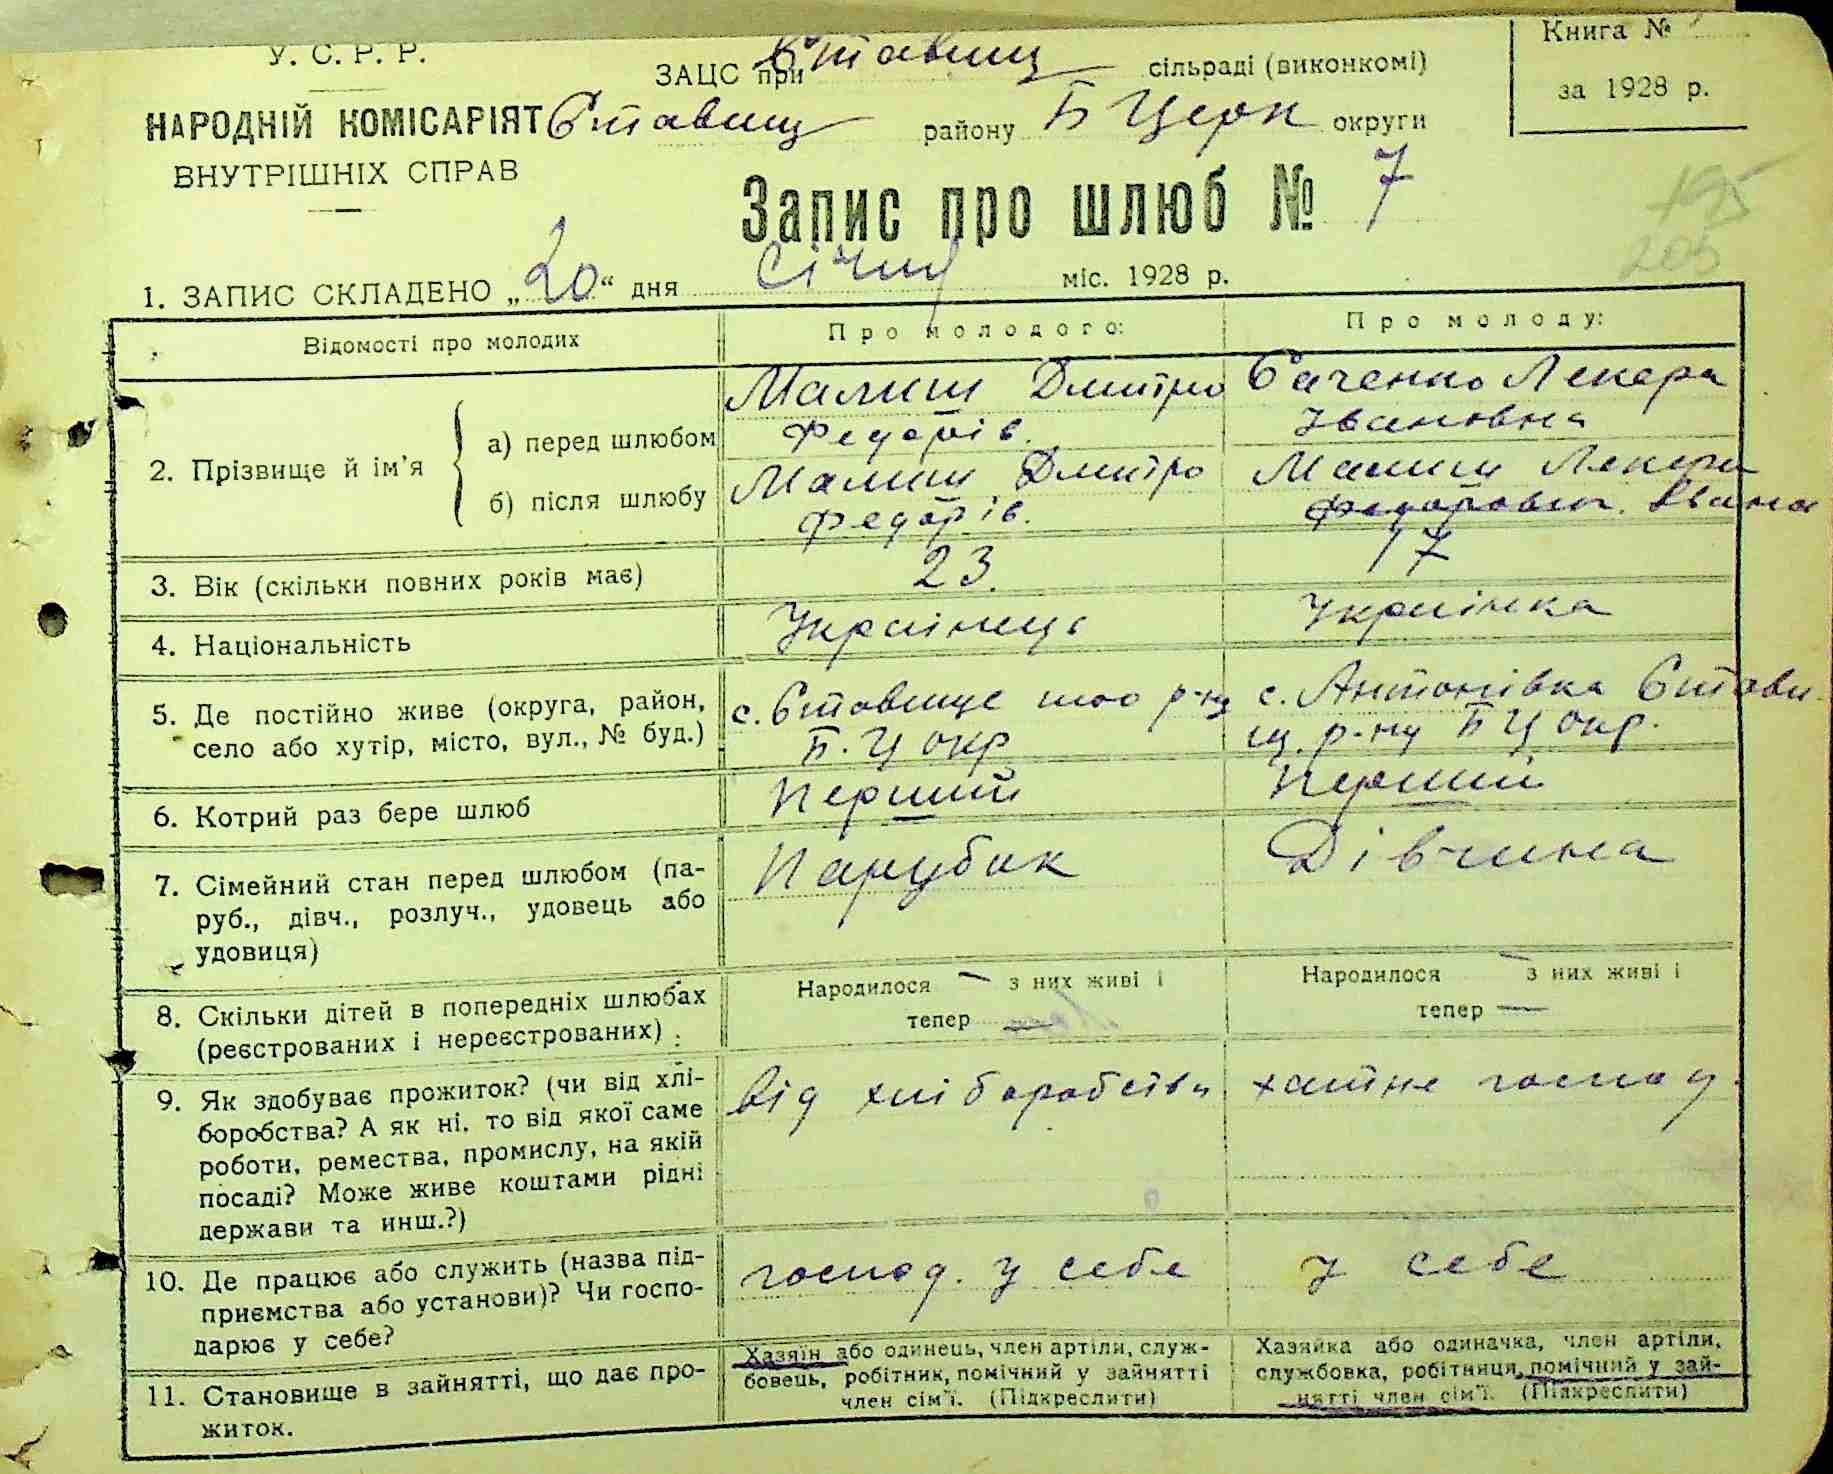 У. С. Р. Р.
НАРОДНІЙ КОМІСАРІЯТ
ВНУТРІШНІХ СПРАВ
ЗАЦС при Ставищ сільраді (виконкомі)
Ставищ району Б Церк округи
Книга №
за 1928 р.
Запис про шлюб № 7
195
205
1. ЗАПИС СКЛАДЕНО „20“ дня січня міс. 1928 р.
Відомості про молодих
Про молодого:
Про молоду:
2. Прізвище й ім’я
а) перед шлюбом
Малиш Дмитро
Федорів.
Саченко Лекера
Івановна
б) після шлюбу
Малиш Дмитро
Федорів.
Малиш Лекера
Федоровн. Івана
3. Вік (скільки повних років має)
23.
17
4. Національність
Українець
Українка
5. Де постійно живе (округа, район,
село або хутір, місто, вул., № буд.)
с. Ставище тоо р-ну
Б. Ц окр
с. Антонівка Стави
щ. р-ну Б Ц окр.
6. Котрий раз бере шлюб
Перший
Перший
7. Сімейний стан перед шлюбом (па-
руб., дівч., розлуч., удовець або
удовиця)
Парубок
Дівчина
8. Скільки дітей в попередніх шлюбах
(реєстрованих і нереєстрованих) .
Народилося — з них живі і
тепер —
Народилося — з них живі і
тепер —
9. Як здобуває прожиток? (чи від хлі-
боробства? А як ні, то від якої саме
роботи, ремества, промислу, на якій
посаді? Може живе коштами рідні
держави та инш.?)
від хліборобства
хатне господ.
10. Де працює або служить (назва під-
приємства або установи)? Чи госпо-
дарює у себе?
господ. у себе
у себе
11. Становище в зайнятті, що дає про-
житок.
Хазяїн або одинець, член артіли, служ-
бовець, робітник, помічний у зайнятті
член сім’ї. (Підкреслити)
Хазяйка або одиначка, член артіли,
службовка, робітниця, помічний у зай-
нятті член сім’ї. (Підкреслити)